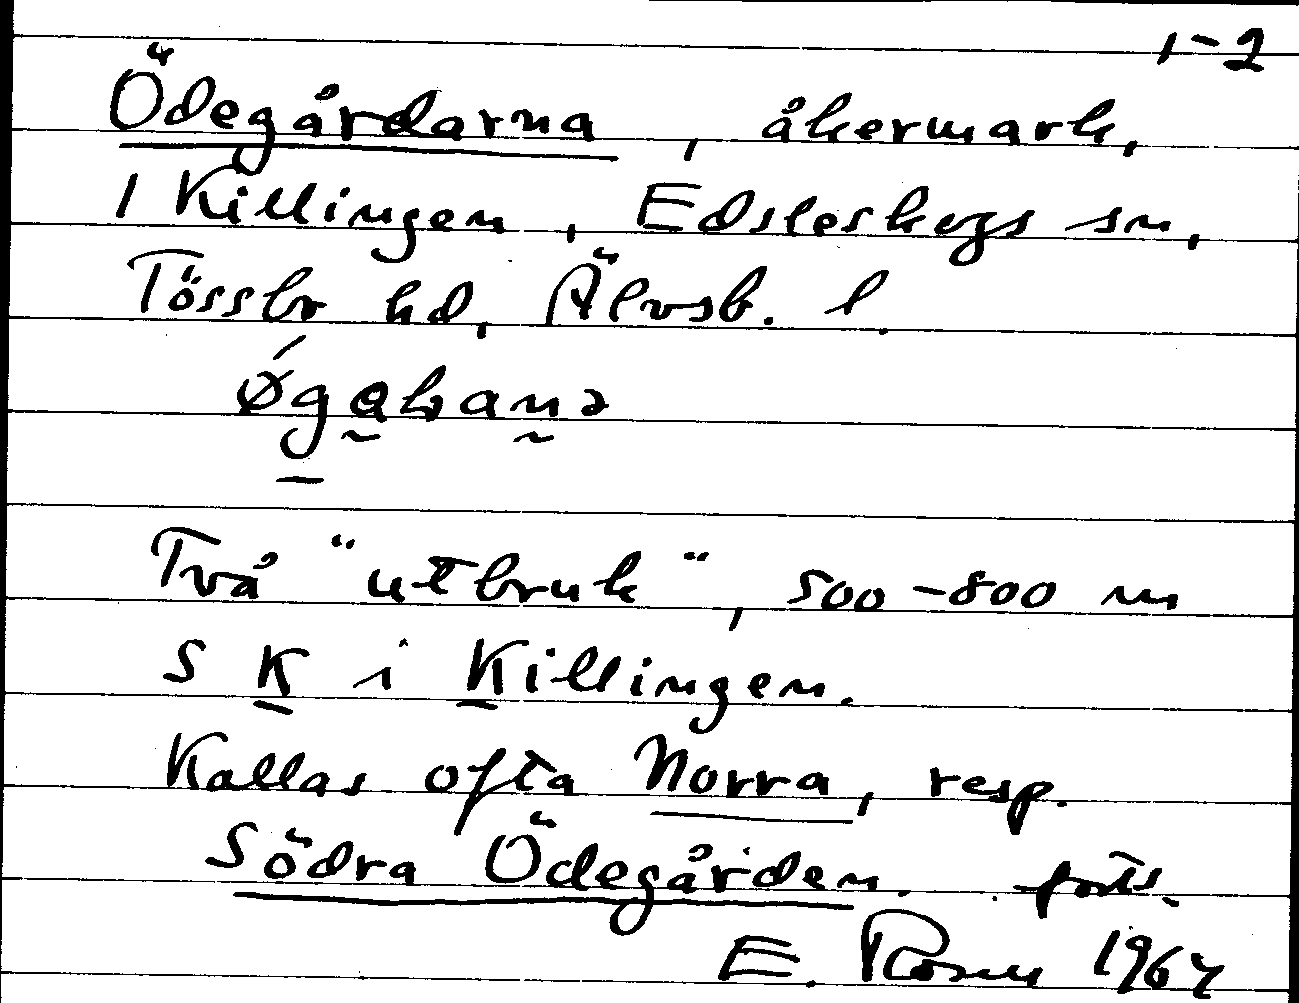 1-2
Ödegårdarna, åkermark,
i Killingen, Edsleskogs sn,
Tössbo hd, Älvsb. l.
Två "utbruk", 500-800 m
S K i Killingen.
Kallas ofta Norra, resp.
Södra Ödegården. forts.
E. Rosen 1964